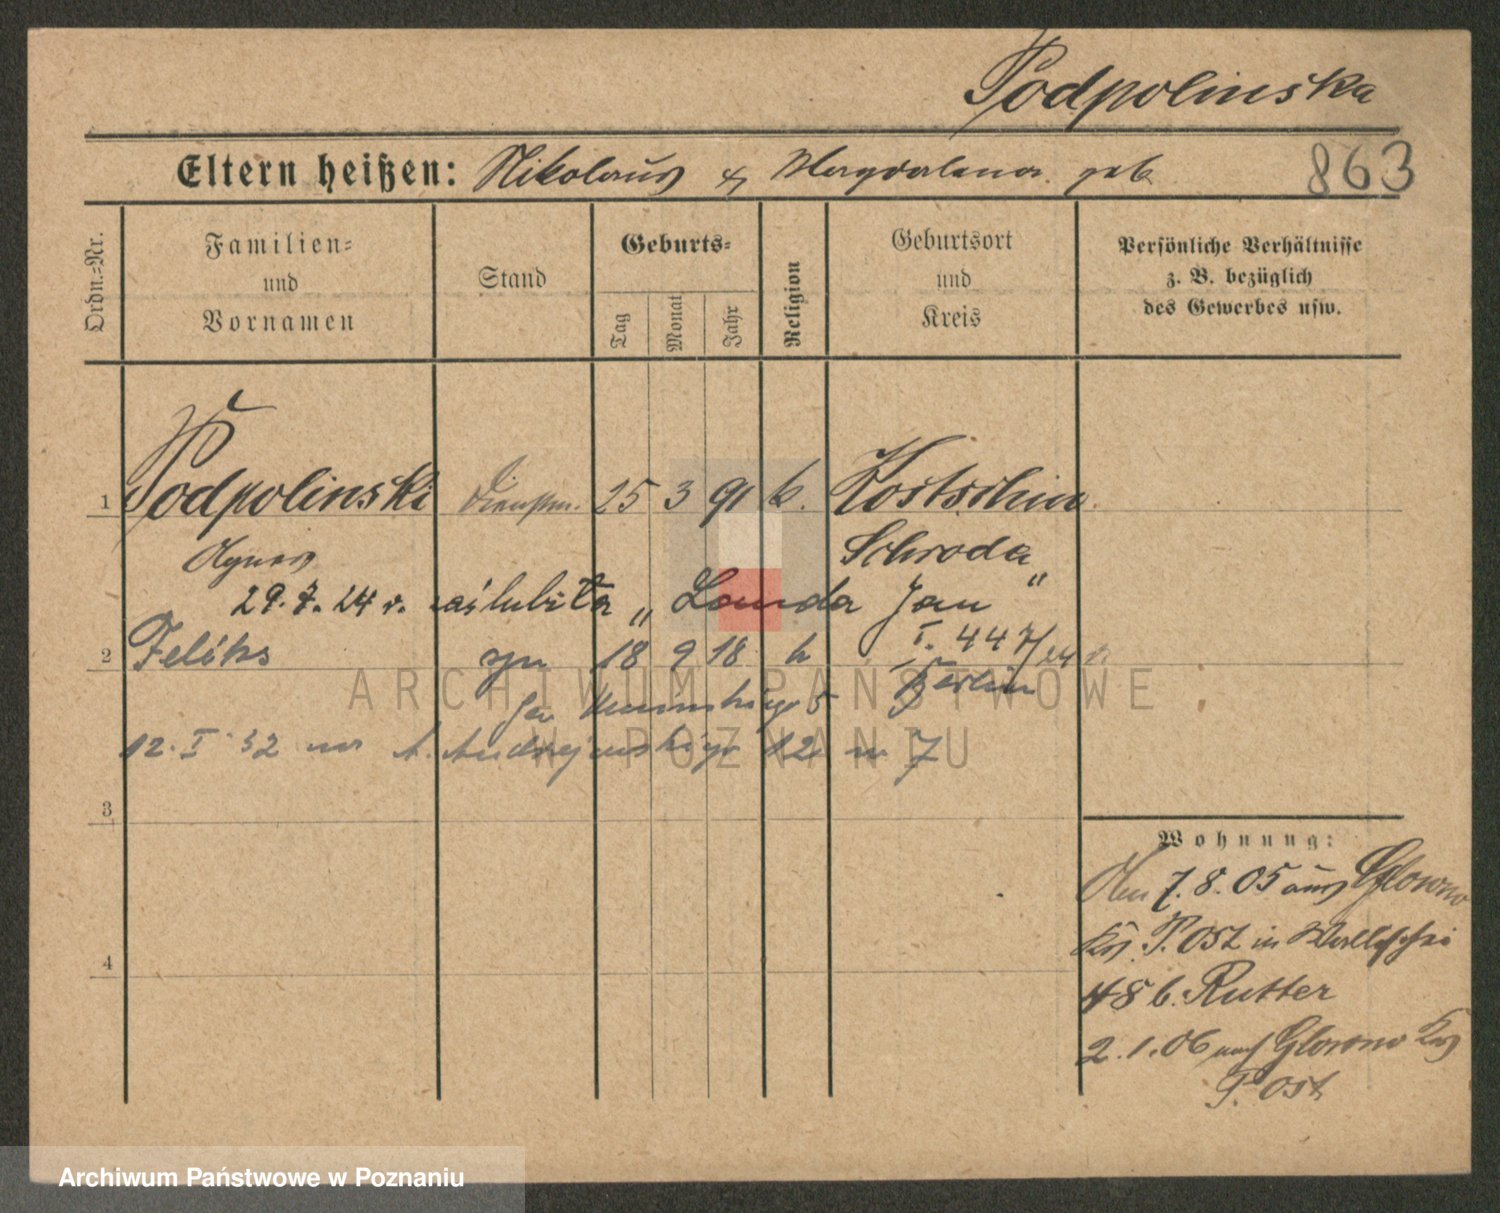 Podpolinska
Eltern heißen: Nikolaus & Magdalena geb
863
Ordn.=Nr.
Familien=
und
Vornamen
Stand
Geburts=
Tag
Monat
Jahr
Religion
Geburtsort
und
Kreis
Persönliche Verhältnisse
z. B. bezüglich
des Gewerbes usw.
1 Podpolinski Dienstm. 25 3 91 k. Kostschin
Agnes Schroda
29. 7. 24 r. zaślubiła „Londa Jan"
I. 447/24 r.
2 Feliks syn 18 9 18 k Berlin
12. I 32 12 m 7
3
4
Wohnung:
Am 7. 8. 05 aus Glowno
Krs. P. Ost in Wallischei
48 b. Rutter
2. 1. 06 nach Glowno Krs
P. Ost
ARCHIWUM PAŃSTWOWE
W POZNANIU
Archiwum Państwowe w Poznaniu